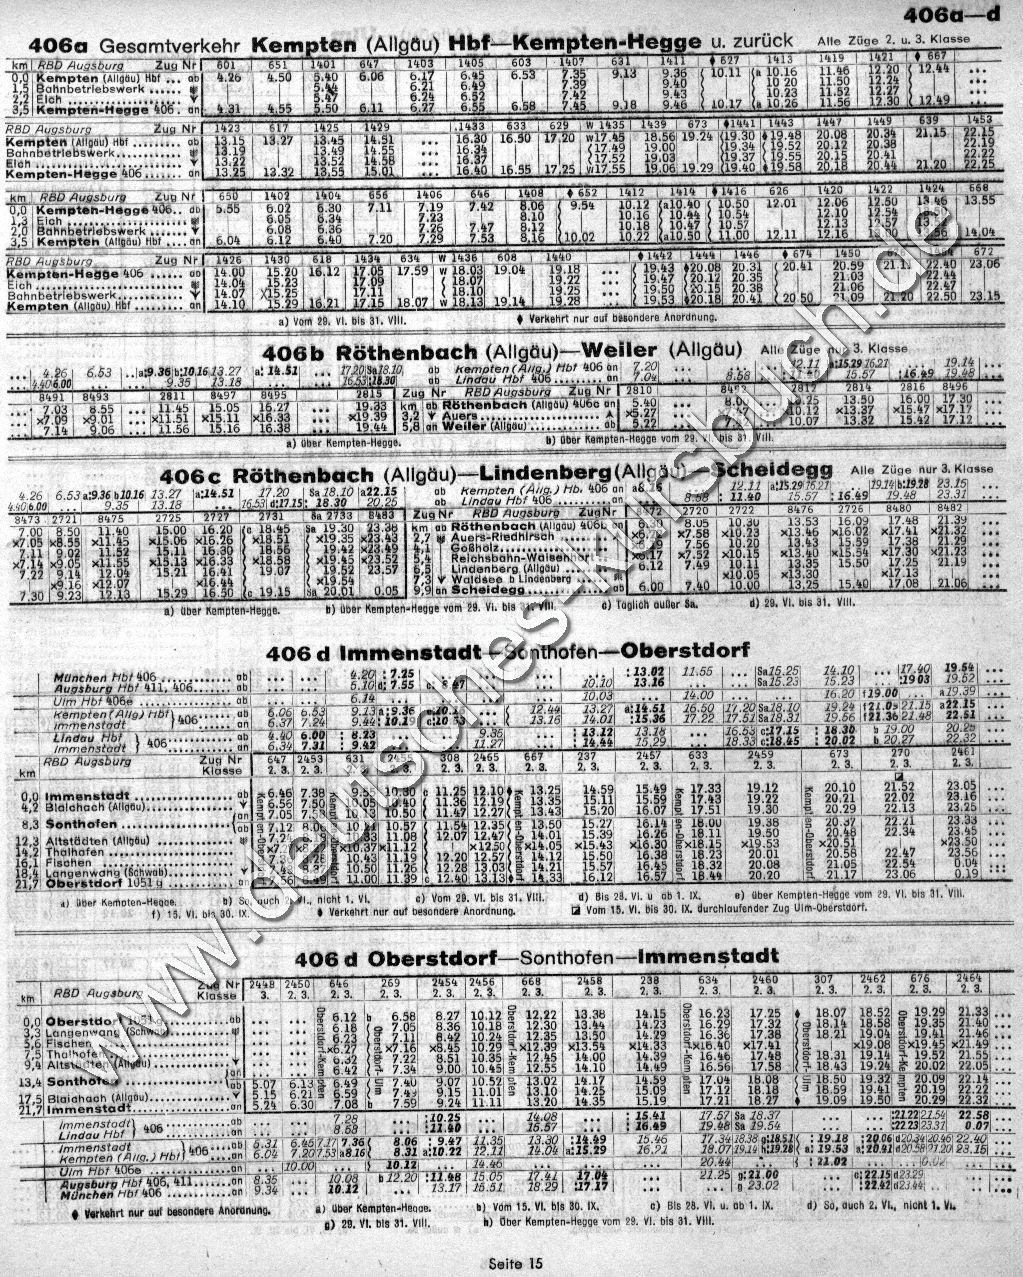 406a—d
406a Gesamtverkehr Kempten (Allgäu) Hbf—Kempten-Hegge u. zurück Alle Züge 2. u. 3. Klasse
km RBD Augsburg Zug Nr 601 651 1401 647 1403 1405 603 1407 631 1411 ♦ 627 1413 1419 1421 ♦ 667
0,0 Kempten (Allgäu) Hbf ... ab 4.26 4.50 5.40 6.06 6.17 6.45 6.53 7.35 9.13 9.36 10.11 a 10.16 11.46 12.20 12.44
1,5 Bahnbetriebswerk 6.21 6.49 7.39 9.40 10 20 11.50 12.24
2,2 Eich 5.47 6.24 6.52 7.42 9.43 10.23 11.52 12.27
3,5 Kempten-Hegge 406 . an 4.31 4.55 5.50 6.11 6.27 6.55 6.58 7.45 9.18 9.46 10.17 a 10.26 11.56 12.30 12.49
RBD Augsburg Zug Nr 1423 617 1425 1429 1433 633 629 W 1435 1439 673 ♦1441 1443 1447 1449 639 1453
Kempten (Allgäu) Hbf ab 13.15 13.27 13.45 14.51 ... 16.30 16.50 17.20 W17.45 18.56 19.24 19.30 ♦19.48 20.08 20.34 21.15 22.15
Bahnbetriebswerk 13.19 13.49 14.55 ... 16.34 17.49 19.00 19.34 19.52 20.12 20.38 22.19
Eich 13.22 13.52 14.58 ... 16.37 17.52 19.03 19.37 19.55 20.15 20.41 22.22
Kempten-Hegge 406 an 13.25 13.32 13.55 15.01 ... 16.40 16.55 17.25 W17.55 19.06 19.29 19.40 ♦19.58 20.18 20.44 21.20 22.25
km RBD Augsburg Zug Nr 650 1402 1404 656 1406 646 1408 ♦ 652 1412 1414 ♦ 1416 626 1420 1422 1424 668
0,0 Kempten-Hegge 406 .. ab 5.55 6.02 6.30 7.11 7.19 7.42 8.06 9.54 10.12 a10.40 10.50 12.01 12.06 12.50 13.46 13.55
1,3 Eich 6.05 6.34 7.23 8.10 10.16 10.44 10.54 12.10 12.54
2,0 Bahnbetriebswerk 6.08 6.36 7.26 7.47 8.12 10.18 10.47 10.57 12.13
3,5 Kempten (Allgäu) Hbf .... an 6.04 6.12 6.40 7.20 7.29 7.53 8.16 10.02 10.22 a10.50 11.00 12.11 12.16 14.04
RBD Augsburg Zug Nr 1426 1430 618 1434 634 W 1436 608 1440 ♦1442 1444 1446 ♦ 674 1450 672
Kempten-Hegge 406 ab 14.00 15.20 16.12 17.05 17.59 W 18.03 19.04 19.18 ... 19.43 ♦20.08 20.31 20.41 20.59 22.40 23.06
Eich 14.04 15.23 17.09 18.07 19.22 ... 19.47 20.12 20.35 21.03 22.44
Bahnbetriebswerk 14.07 X15.25 17.11 18.10 19.25 ... 19.50 20.15 20.38 21.06 22.47
Kempten (Allgäu) Hbf an 14.10 15.29 16.21 17.15 18.07 W 18.13 19.14 19.28 ... 19.53 ♦20.18 20.41 20 50 21.09 21.20 22.50 23.15
a) Vom 29. VI. bis 31. VIII. ♦ Verkehrt nur auf besondere Anordnung.
406b Röthenbach (Allgäu)—Weiler (Allgäu) Alle Züge nur 3. Klasse
... 4.26 6.53 a9.36 b10.16 13.27 a: 14.51 17.20 Sa18.10 ab Kempten (Allg.) Hbf 406 an 7.20 12.11 a:15.29 16.21 19.14
4.40 6.00 9.35 13.18 16.53 :18.30 ab Lindau Hbf 406 an 7.04 8.58 15.57 :16.49 19.48
8491 8493 2811 8497 8495 2815 Zug Nr RBD Augsburg Zug Nr 2810 2817 2814 2816 8496
... 7.03 8.55 ... 11.45 15.05 16.27 ... 19.33 km ab Röthenbach (Allgäu) 406c an 5.40 13.50 16.00 17.30
×7.09 ×9.01 ×11.51 ×15.11 ×16.33 ×19.39 3,2 Auers ×5.27 ×13.37 ×15.47 ×17.17
7.14 9.06 11.56 15.16 16.38 19.44 5,8 an Weiler (Allgäu) ab 5.22 10.07 13.32 15.42 17.12
a) über Kempten-Hegge. b) über Kempten-Hegge vom 29. VI. bis 31. VIII.
406c Röthenbach (Allgäu)—Lindenberg(Allgäu)—Scheidegg Alle Züge nur 3. Klasse
4.26 6.53 a:9.36 b10.16 13.27 a:14.51 17.20 Sa 18.10 a22.15 ab Kempten (Allg.) Hb. 406 an a8.16 12.11 a:15.29 16.21 19.14 b:19.28 23.15
4.40 6.00 9.35 13.18 16.53 a:17.15 :18.30 20.25 ab Lindau Hbf 406 an 8.58 : 11.40 15.57 :16.49 19.48 23.31
8473 2721 8475 2725 2727 2731 Sa 2733 8483 Zug Nr RBD Augsburg Zug Nr 2720 2722 8476 2726 8480 8482
7.00 8.50 11.40 15.00 16.20 c 18.45 Sa 19.30 23.38 km ab Röthenbach (Allgäu) 406b an 6.30 8.05 10.30 13.53 16.09 17.48 21.39
×7.05 ×8.55 ×11.45 ×15.06 ×16.26 ×18.51 ×19.35 ×23.43 2,7 Auers-Riedhirsch ×7.58 ×10.23 ×13.46 ×16.02 ×17.41 ×21.32
7.11 9.02 11.52 15.11 16.30 18.56 19.42 ×23.49 4,1 Goßholz 7.56 10.20 13.43 15.59 17.38 21.29
×7.14 ×9.05 ×11.55 ×15.13 ×16.33 ×18.58 ×19.45 ×23.52 5,4 Reichsbahn-Waisenh. ×7.52 ×10.15 ×13.40 ×15.54 ×17.30 ×21.23
7.22 9.14 12.04 15.21 16.41 19.07 19.52 23.57 6,5 Lindenberg (Allgäu) 6.12 7.49 10.11 13.35 15.50 17.25 21.19
×9.16 ×12.07 ×16.44 ×19.54 7,3 Waldsee b Lindenberg ×10.05 ×13.30 ×17.13
7.30 9.23 12.13 15.29 16.50 c 19.15 Sa 20.01 0.05 9,9 an Scheidegg ab 6.00 7.40 10.00 13.25 15.40 17.08 21.06
a) über Kempten-Hegge. b) über Kempten-Hegge vom 29. VI. bis 31. VIII. c) Täglich außer Sa. d) 29. VI. bis 31. VIII.
406 d Immenstadt—Sonthofen—Oberstdorf
München Hbf 406 ab ... 4.20 : 7.25 : 13.02 11.55 Sa15.25 14.10 17.40 19.54
Augsburg Hbf 411, 406 ab 5.10 d: 7.55 10.10 13.16 Sa15.23 15.23 :19 03 19.52
Ulm Hbf 406e ab 6.14 10.03 14.00 16.20 f19.00 a19.39
Kempten (Allg) Hbf } 406 ab 6.06 6.53 9.13 a:9.36 12.44 13.27 a:14.51 16.50 17.20 Sa18.10 19.24 f21.09 21.15 a22.15
Immenstadt an 6.37 7.24 9.44 :10.19 c:10 53 13.16 14.01 :15.36 17.22 17.51 Sa18.31 19.56 f21.36 21.48 22.51
Lindau Hbf } 406 ab 4.40 6.00 : 8.23 9.35 : 13.12 13.18 16.53 c:17.15 : 18.30 b 19.00 20.25
Immenstadt an 6.34 7.31 : 9.42 11.27 : 14.44 15.29 18.33 c:18.45 : 20.02 b 20.27 22.32
km RBD Augsburg Zug Nr 647 2453 631 2455 308 2465 667 237 2457 633 2459 673 270 2461
Klasse 2. 3. 2. 3. 2. 3. 2. 3. 2. 3. 2. 3. 2. 3. 2. 3. 2. 3. 2. 3. 2. 3. 2. 3. 2. 3. 2. 3.
0,0 Immenstadt ab 6.46 7.38 9.55 10.30 c 11.25 12.10 ♦ 13.25 14.59 15.49 17.33 19.12 20.10 21.52 23.05
4,2 Blaichach (Allgäu) 6.56 7.50 10.05 10.40 11.36 12.19 13.35 15.11 15.59 17.43 19.22 20.21 22.02 23.16
an 7.05 7.58 10.13 10.50 11.47 12.27 13.42 15.20 16.07 17.51 19.30 20.29 22.13 23.25
8,3 Sonthofen ab 7.12 8.06 10.57 11.54 12.35 13.50 15.27 16.14 18.00 19.38 20.37 22.21 23.33
12,3 Altstädten (Allgäu) 11.08 12.07 12.47 14.01 15.39 16.26 18.11 19.50 20.48 22.34 23.45
14,2 Thalhofen ×11.12 ×12.50 ×14.05 ×15.43 ×16.30 ×18.15 ×19.53 ×20.51 ×23.50
16,1 Fischen 10.43 11.19 12.20 12.57 14.12 15.50 16.38 18.23 20.01 20.58 22.47 23.56
18,4 Langenwang (Schwab) 10.50 11.26 12.28 13.03 14.21 15.57 16.45 18.32 20.08 21.05 22.54 0.04
21,7 Oberstdorf 1051 g an 11.00 11.39 c 12.40 13.13 ♦ 14.33 16.12 16.57 18.44 20.20 21.17 23.06 0.19
Kempten-Oberstdorf
a) über Kempten-Hegge. b) So, auch 2. VI., nicht 1. VI. c) Vom 29. VI. bis 31. VIII. d) Bis 28. VI. u ab 1. IX. e) über Kempten-Hegge vom 29. VI. bis 31. VIII.
f) 15. VI. bis 30. IX. ♦ Verkehrt nur auf besondere Anordnung. Vom 15. VI. bis 30. IX. durchlaufender Zug Ulm-Oberstdorf.
406 d Oberstdorf—Sonthofen—Immenstadt
km RBD Augsburg Zug Nr 2448 2450 646 269 2454 2456 668 2458 238 634 2460 307 2462 676 2464
Klasse 3. 2. 3. 2. 3. 2. 3. 2. 3. 2. 3. 2. 3. 2. 3. 2. 3. 2. 3. 2. 3. 2. 3. 2. 3. 2. 3. 2. 3.
0,0 Oberstdorf 1051 g ab ... ... 6.12 b 6.58 8.27 10.12 12.22 13.38 14.15 16.23 17.25 ♦ 18.07 18.52 19.29 21.33
3,3 Langenwang (Schwab) ... ... 6.18 7.05 8.36 10.18 12.30 13.44 14.23 16.29 17.32 18.14 18.58 19.35 21.40
5,6 Fischen ... ... 6.23 7.11 8.42 10.24 12.35 13.50 14.29 16.36 17.38 18.21 19.04 19.41 21.46
7,5 Thalhofen ... ... ×6.27 ×7.16 ×8.45 10.29 ×12.39 ×13.54 ×14.33 ×16.40 ×17.41 ×19.08 ×19.45 ×21.49
9,4 Altstädten (Allgäu) ... ... 6.32 7.22 8.51 10.35 12.45 14.00 14.39 16.46 17.48 18.31 19.14 19.52 21.55
an ... ... 6.42 7.34 9.00 10.45 12.55 14.10 14.49 16.56 17.58 18.43 19.24 20.02 22.05
13,4 Sonthofen ab 5.07 6.13 6.49 7.40 9.07 10.52 13.02 14.17 14.59 17.04 18.08 18.50 19.32 20.09 22.14
17,5 Blaichach (Allgäu) 5.15 6.21 6.59 7.49 9.15 11.01 13.10 14.25 15.09 17.12 18.18 18.59 19.41 20.19 22.22
21,7 Immenstadt an 5.24 6.30 7.08 b 7.59 9.24 11.11 13.20 14.35 15.19 17.21 18.27 ♦ 19.09 19.50 20.29 22.32
Oberstdorf-Kempten
Oberstdorf-Ulm
Immenstadt } 406 ab 7.28 :10.25 14.08 : 15.41 17.57 Sa 18.37 :21.22 21.54 22.58
Lindau Hbf an 8.58 :11.40 15.57 : 16.49 19.48 Sa 19.54 :22.23 23.31 0.07
Immenstadt } 406 ab 5.31 6.45 7.17 7.36 8.06 : 9.47 11.35 13.30 :14.49 15.46 17.34 18.38 g:18.51 : 19.18 :20.06 d20.34 20.46 22.40
Kempten (Allg.) Hbf an 6.04 7.20 7.53 a8.16 8.31 a:10.22 12.11 14.04 a:15.29 16.21 18.07 19.14 h:19.28 a: 19.53 a:20.41 d20.58 21.20 23.15
Ulm Hbf 406e an 10.00 10.12 14.46 20.44 : 21.02
Augsburg Hbf 406, 411 an 8.35 10.08 b 12.20 :11.48 15.05 17.41 17.04 21.25 g:21.00 c:22.15 d23.29
München Hbf 406 an 9.34 10.12 13.17 16.51 18.29 :17.17 g 23.02 :22.42 d23.44
♦ Verkehrt nur auf besondere Anordnung. a) über Kempten-Hegge. b) Vom 15. VI. bis 30. IX. c) Bis 28. VI. u. ab 1. IX. d) So, auch 2. VI., nicht 1. VI.
g) 29. VI. bis 31. VIII. h) über Kempten-Hegge vom 29. VI. bis 31. VIII.
Seite 15
www.deutsches-kursbuch.de